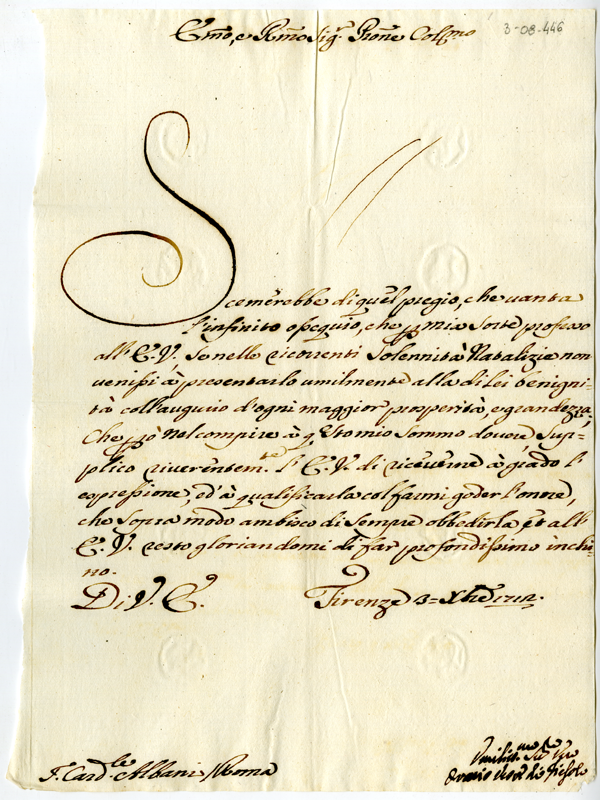 Em̃o, e Rm̃o Sig.r Prone Col.mo
3-08-446
Scemerebbe di quel pregio, che vanta
l'infinito ossequio, che p mia sorte professo
all' E. V. se nelle ricorrenti Solennità Natalizie non
venissi à presentarlo umilmente alla di lei benigni-
tà coll'augurio d'ogni maggior prosperità, e grandezza;
Che però nel compire à q.to mio sommo dovere sup-
plico riverentem.te l' E. V. di riceverne à grado l'
espressione, ed à qualificarla col farmi goder l'onore,
che sopra modo ambisco di sempre obbedirla et all'
E. V. resto gloriandomi di far profondissimo inchi-
no.
Di V. E. Firenze 3= Xbre 1712.
S. Card.le Albani / Roma
Umiliss.mo
Orazio Vesc.o di Fiesole